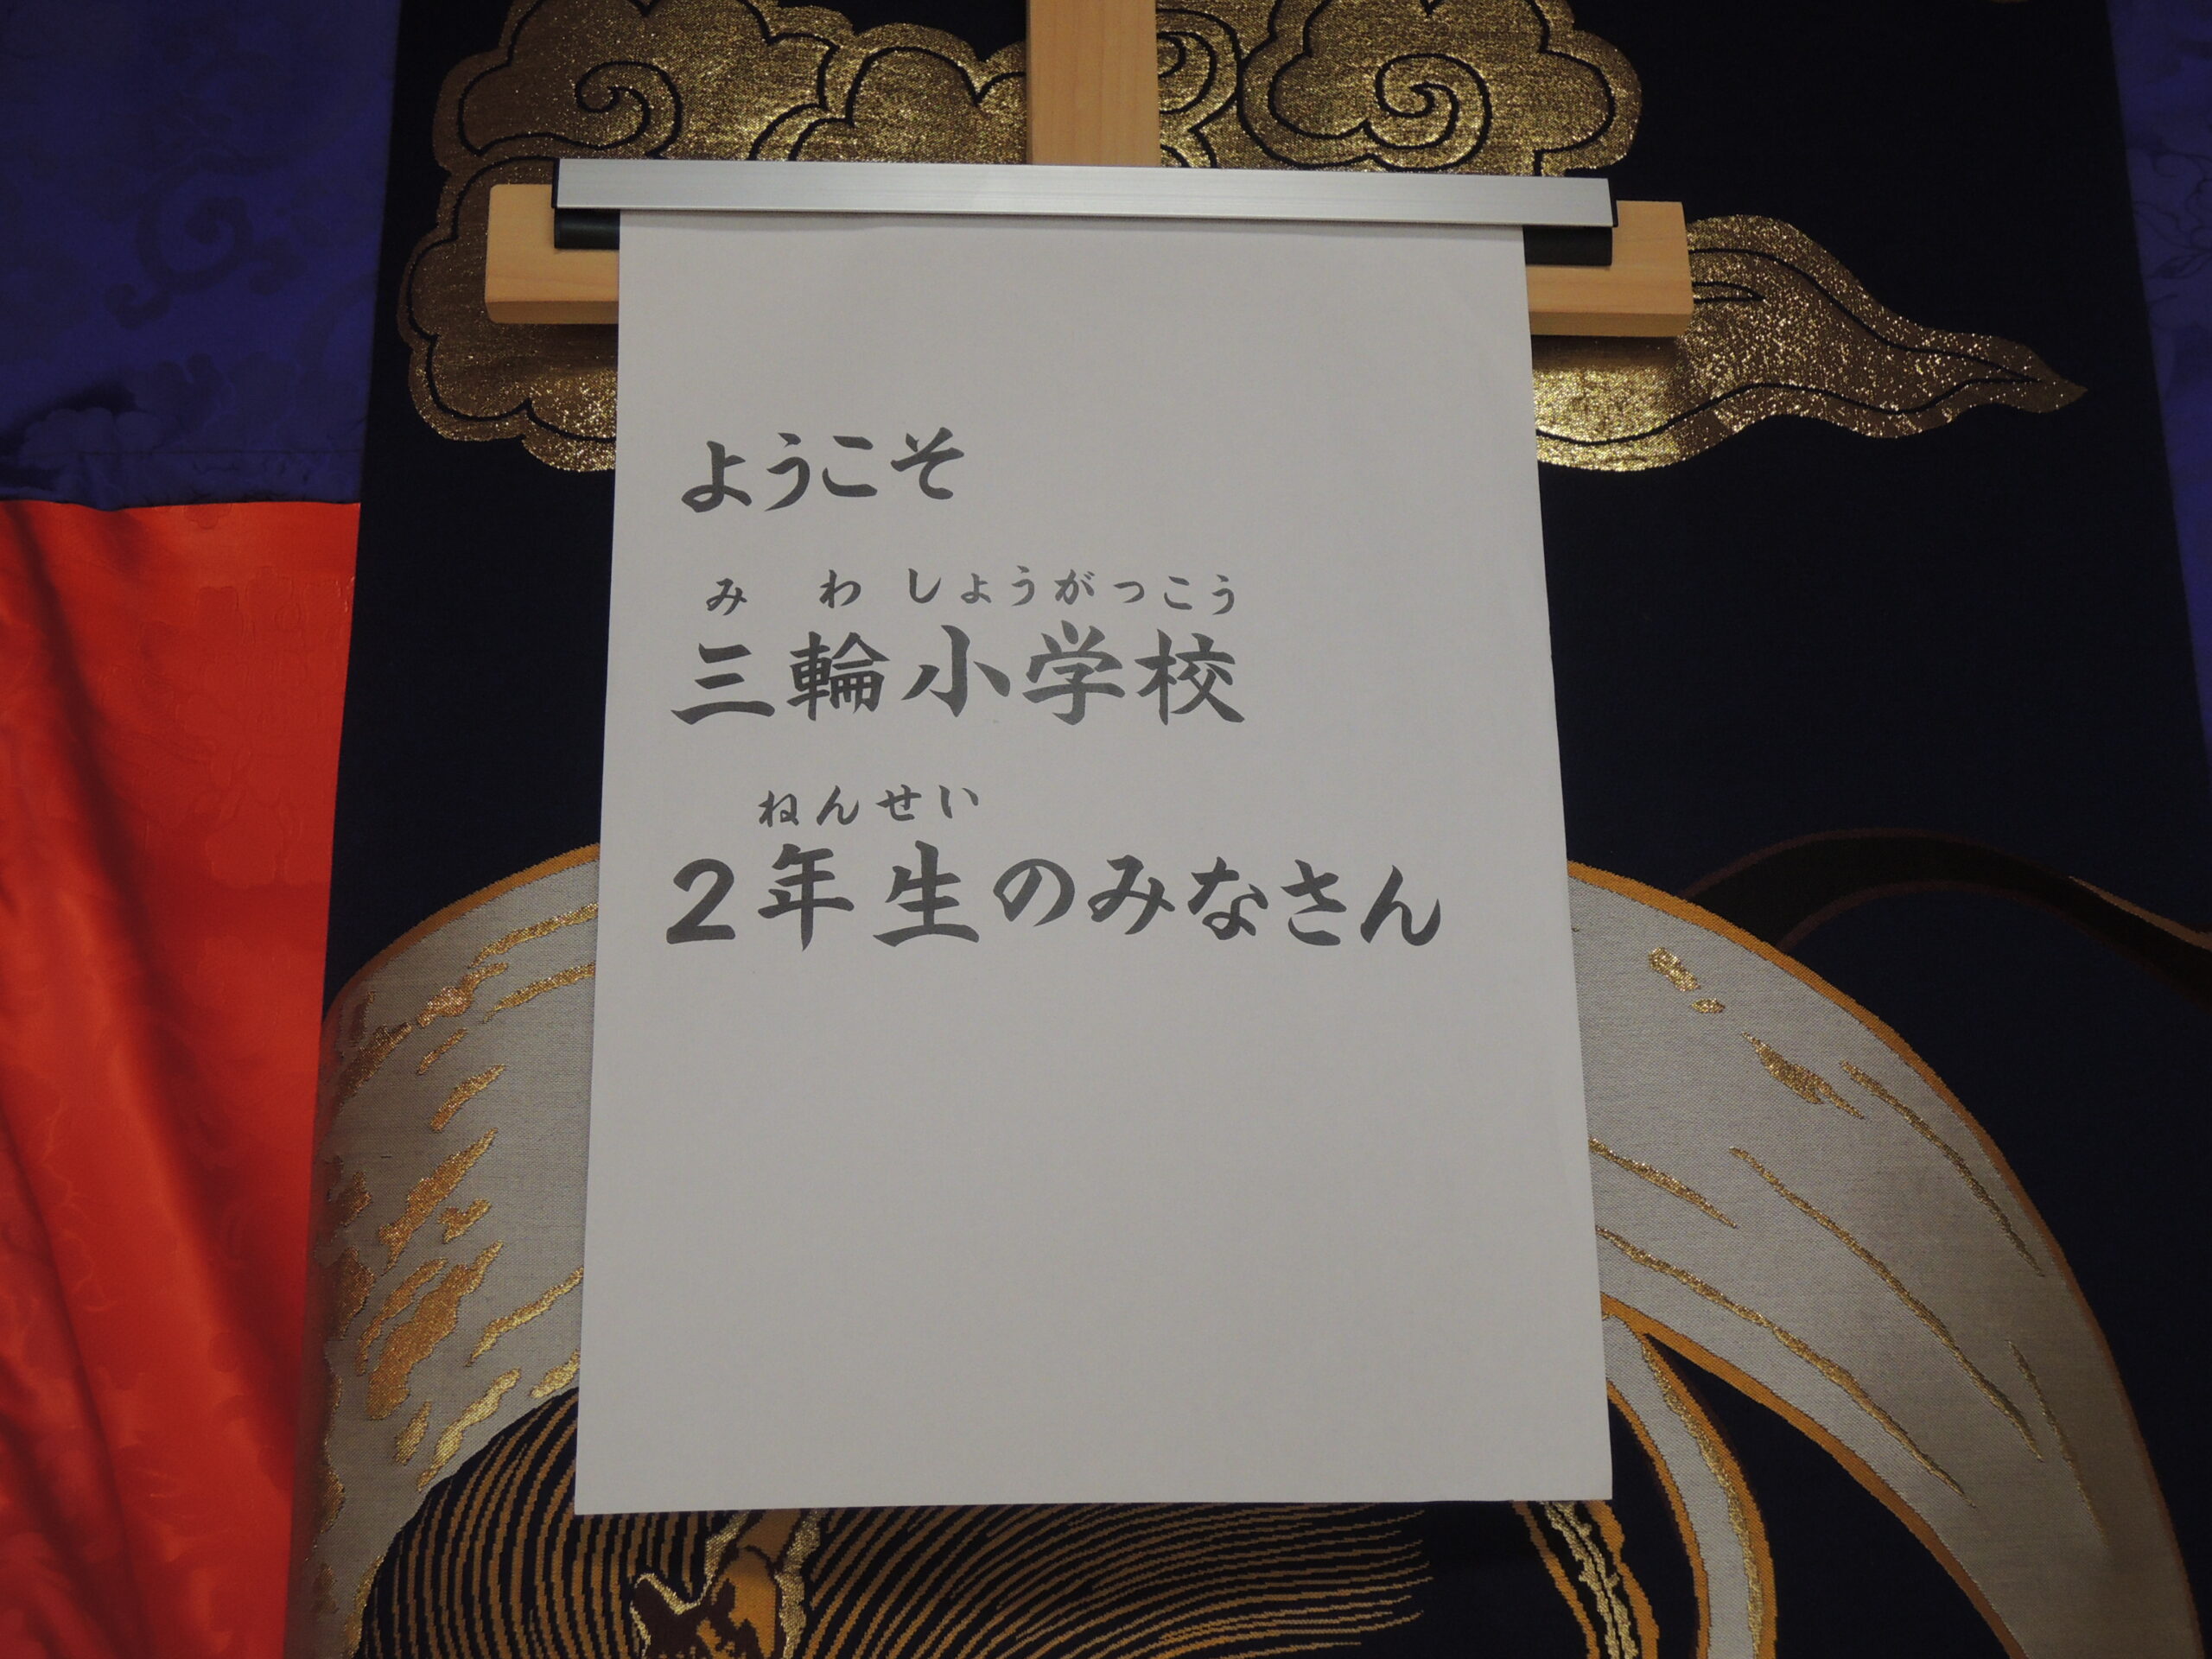 ようこそ
み わ しょうがっこう
三輪小学校
ねんせい
2年生のみなさん